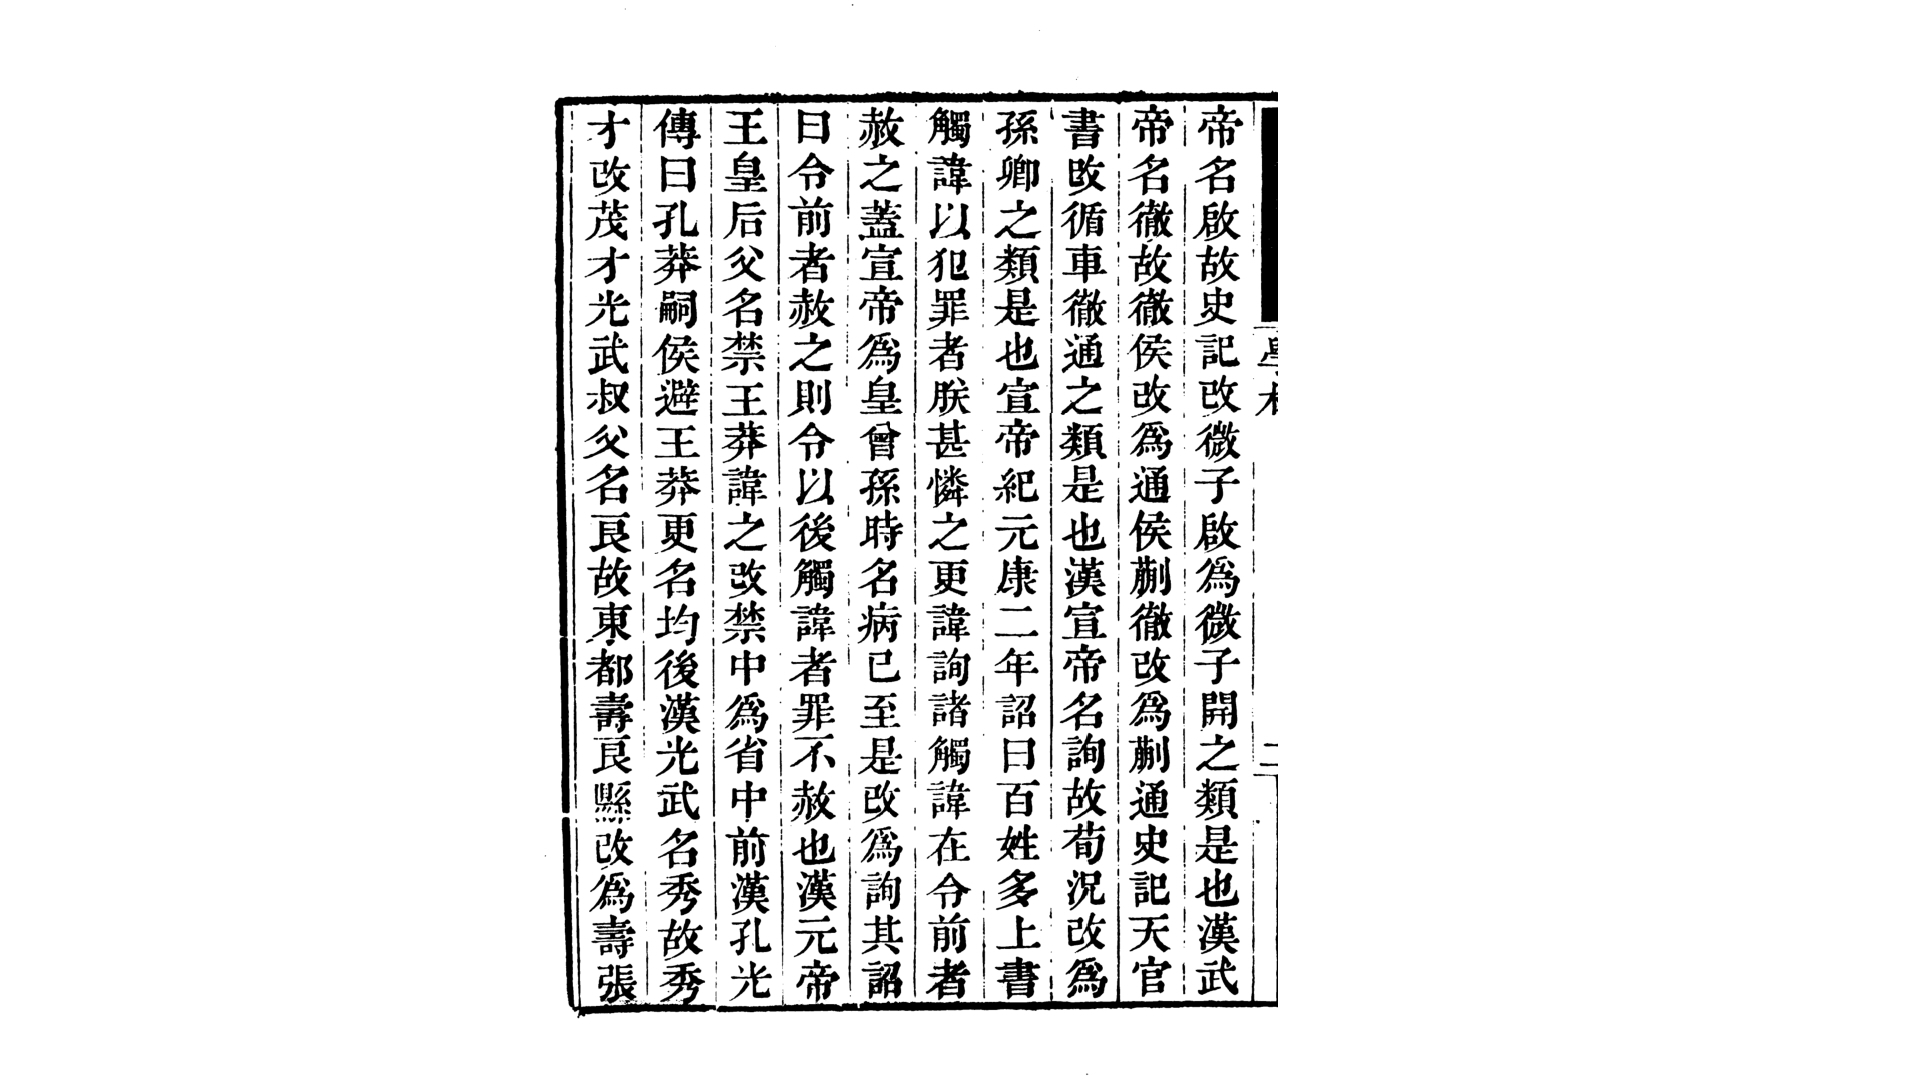 帝名啟故史記改微子啟為微子開之類是也漢武
帝名徹故徹侯改為通侯蒯徹改為蒯通史記天官
書改循車徹通之類是也漢宣帝名詢故荀況改為
孫卿之類是也宣帝紀元康二年詔曰百姓多上書
觸諱以犯罪者朕甚憐之更諱詢諸觸諱在令前者
赦之蓋宣帝為皇曾孫時名病已至是改為詢其詔
曰令前者赦之則令以後觸諱者罪不赦也漢元帝
王皇后父名禁王莽諱之改禁中為省中前漢孔光
傳曰孔莽嗣侯避王莽更名均後漢光武名秀故秀
才改茂才光武叔父名良故東都壽良縣改為壽張
二